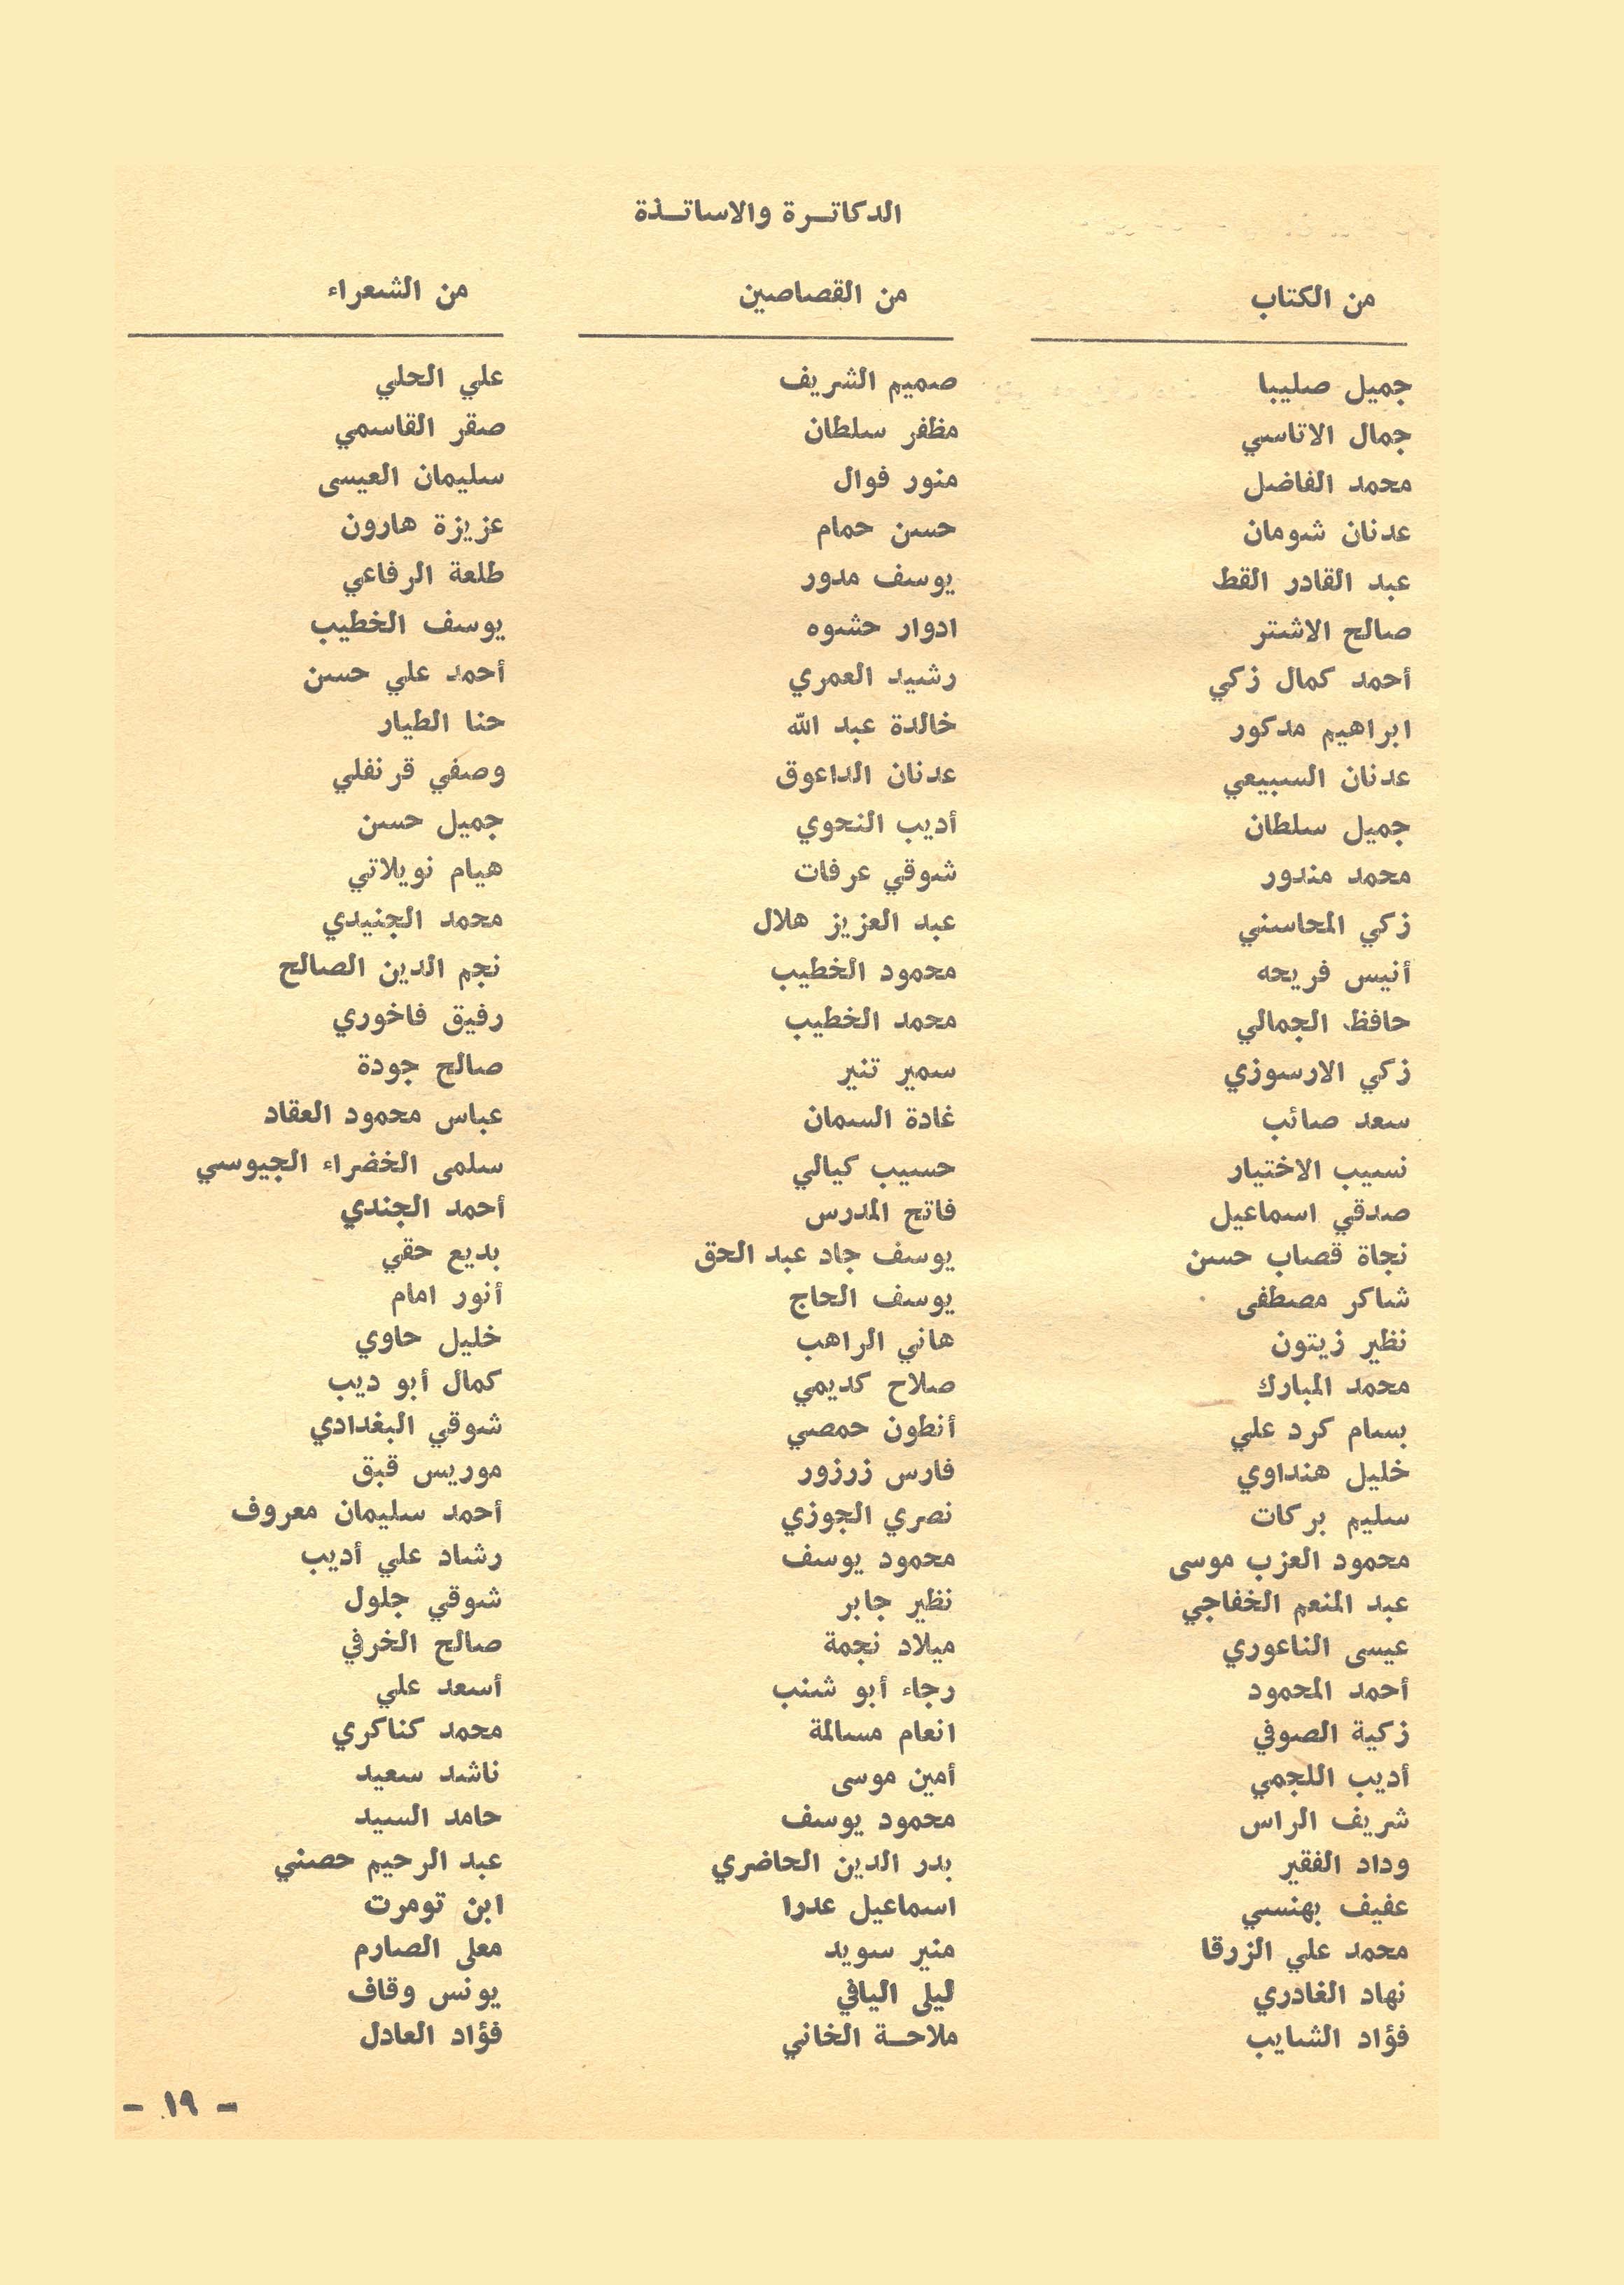 الدكاتـرة والاساتـذة
من الكتاب من القصاصين من الشعراء
جميل صليبا صميم الشريف علي الحلي
جمال الاتاسي مظفر سلطان صقر القاسمي
محمد الفاضل منور فوال سليمان العيسى
عدنان شومان حسن حمام عزيزة هارون
عبد القادر القط يوسف مدور طلعة الرفاعي
صالح الاشتر ادوار حشوه يوسف الخطيب
أحمد كمال زكي رشيد العمري أحمد علي حسن
ابراهيم مدكور خالدة عبد الله حنا الطيار
عدنان السبيعي عدنان الداعوق وصفي قرنفلي
جميل سلطان أديب النحوي جميل حسن
محمد مندور شوقي عرفات هيام نويلاتي
زكي المحاسني عبد العزيز هلال محمد الجنيدي
أنيس فريحه محمود الخطيب نجم الدين الصالح
حافظ الجمالي محمد الخطيب رفيق فاخوري
زكي الارسوزي سمير تنير صالح جودة
سعد صائب غادة السمان عباس محمود العقاد
نسيب الاختيار حسيب كيالي سلمى الخضراء الجيوسي
صدقي اسماعيل فاتح المدرس أحمد الجندي
نجاة قصاب حسن يوسف جاد عبد الحق بديع حقي
شاكر مصطفى يوسف الحاج أنور امام
نظير زيتون هاني الراهب خليل حاوي
محمد المبارك صلاح كديمي كمال أبو ديب
بسام كرد علي أنطون حمصي شوقي البغدادي
خليل هنداوي فارس زرزور موريس قبق
سليم بركات نصري الجوزي أحمد سليمان معروف
محمود العزب موسى محمود يوسف رشاد علي أديب
عبد المنعم الخفاجي نظير جابر شوقي جلول
عيسى الناعوري ميلاد نجمة صالح الخرفي
أحمد المحمود رجاء أبو شنب أسعد علي
زكية الصوفي انعام مسالمة محمد كناكري
أديب اللجمي أمين موسى ناشد سعيد
شريف الراس محمود يوسف حامد السيد
وداد الفقير بدر الدين الحاضري عبد الرحيم حصني
عفيف بهنسي اسماعيل عدرا ابن تومرت
محمد علي الزرقا منير سويد معلى الصارم
نهاد الغادري ليلى اليافي يونس وقاف
فؤاد الشايب ملاحـة الخاني فؤاد العادل
- ١٩ -